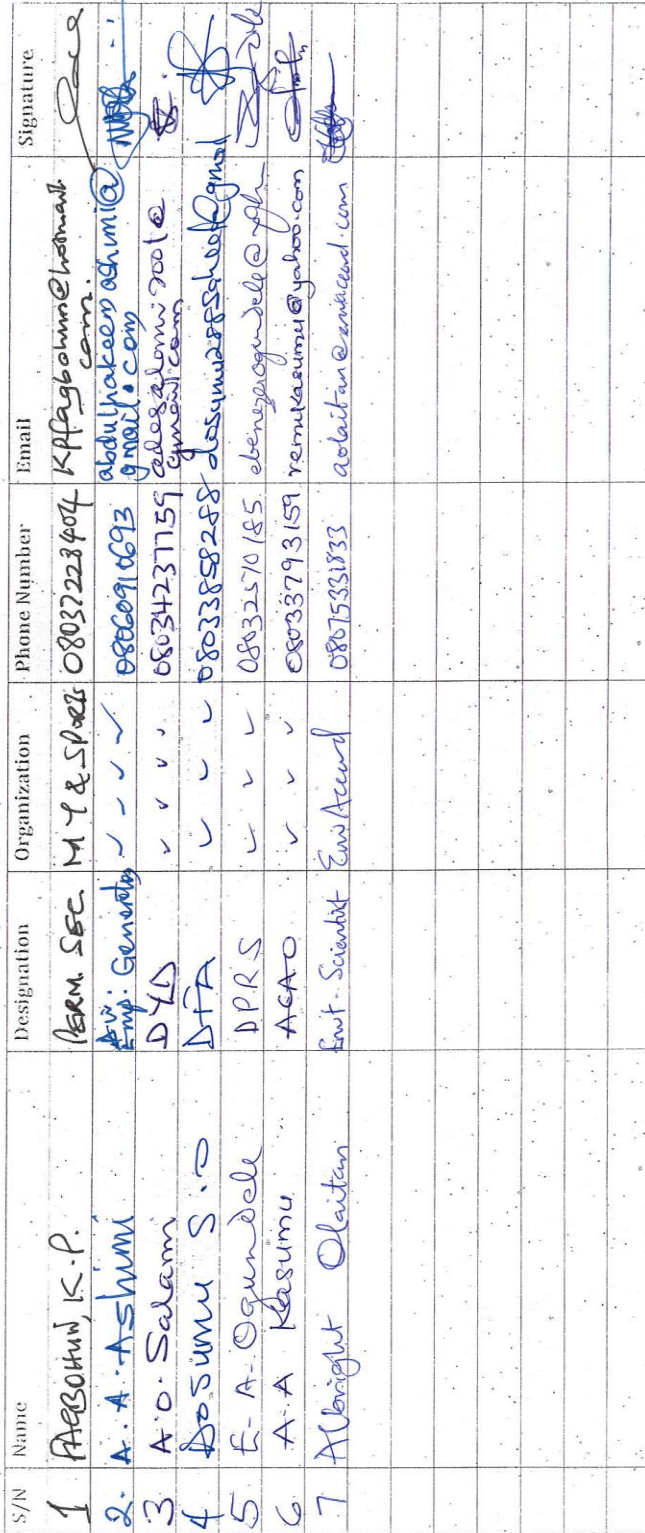 S/N Name Designation Organization Phone Number Email Signature
1 FAGBOHUN, K.P. PERM. SEC. M Y & SPORTS 08037228404 KPfagbohun@hotmail.
com.
2. A. A. Ashimi Generator ✓ ✓ ✓ ✓ 08060910693 abdulhakeemashimi@
gmail.com
3 A.O. Salami DYD ✓ ✓ ✓ ✓ 08034237159 adesalami2001@
gmail.com
4 Dosumu S.O DFA ✓ ✓ ✓ 08033858288
5 E.A. Ogundele DPRS ✓ ✓ ✓ 08032570185
6 A.A Kasumu ACAO ✓ ✓ ✓ 08033793159 remikasumu@yahoo.com
7 Albright Olaitan Envt. Scientist EnvAccord 08075331833 aolaitan@envaccord.com